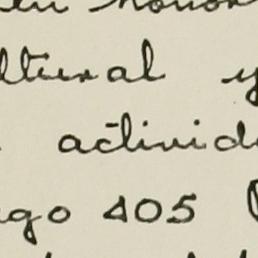 honor
ltural y
activid
go 405